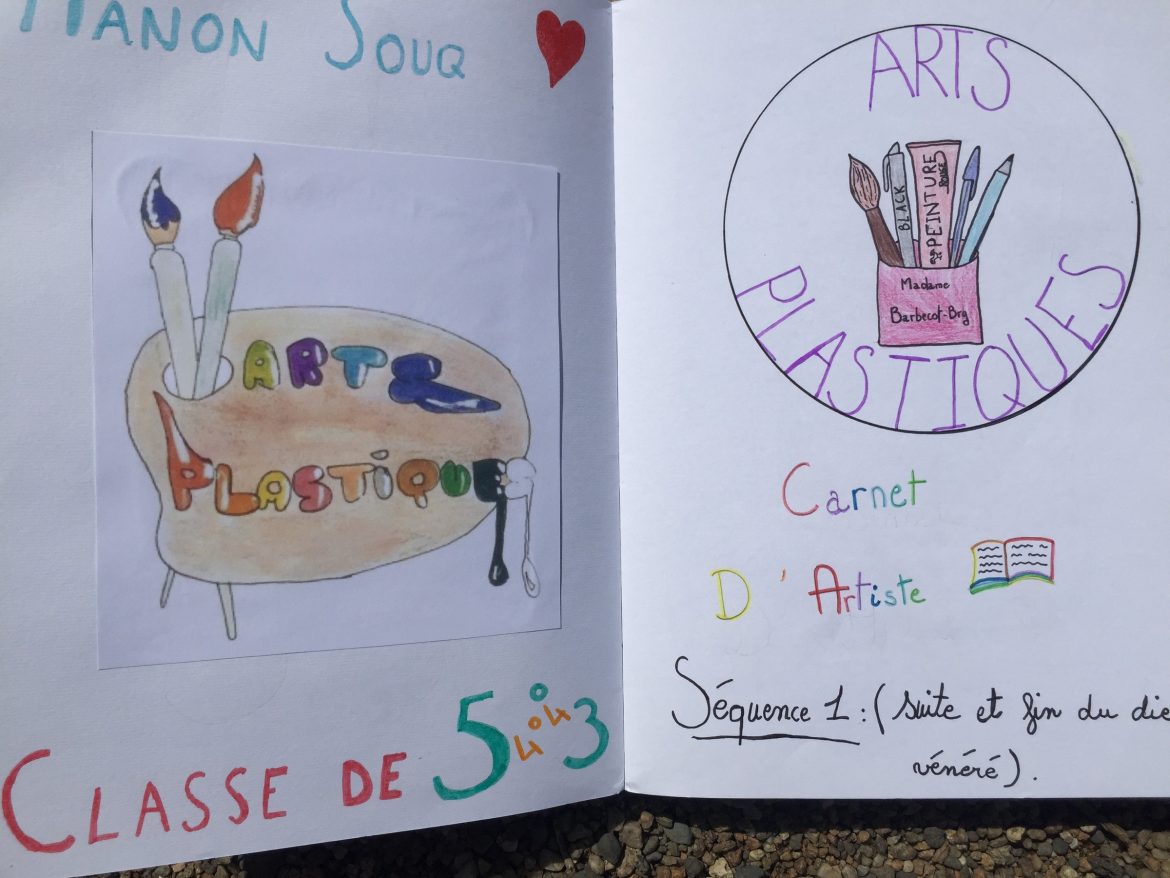 MANON SOUQ
ARTS
PLASTIQUES
CLASSE DE 5° 3
4°4
ARTS
PLASTIQUES
BLACK
PEINTURE
ROUGE
Madame
Barbecot-Brg
Carnet
D'Artiste
Séquence 1 : (suite et fin du die
vénéré).